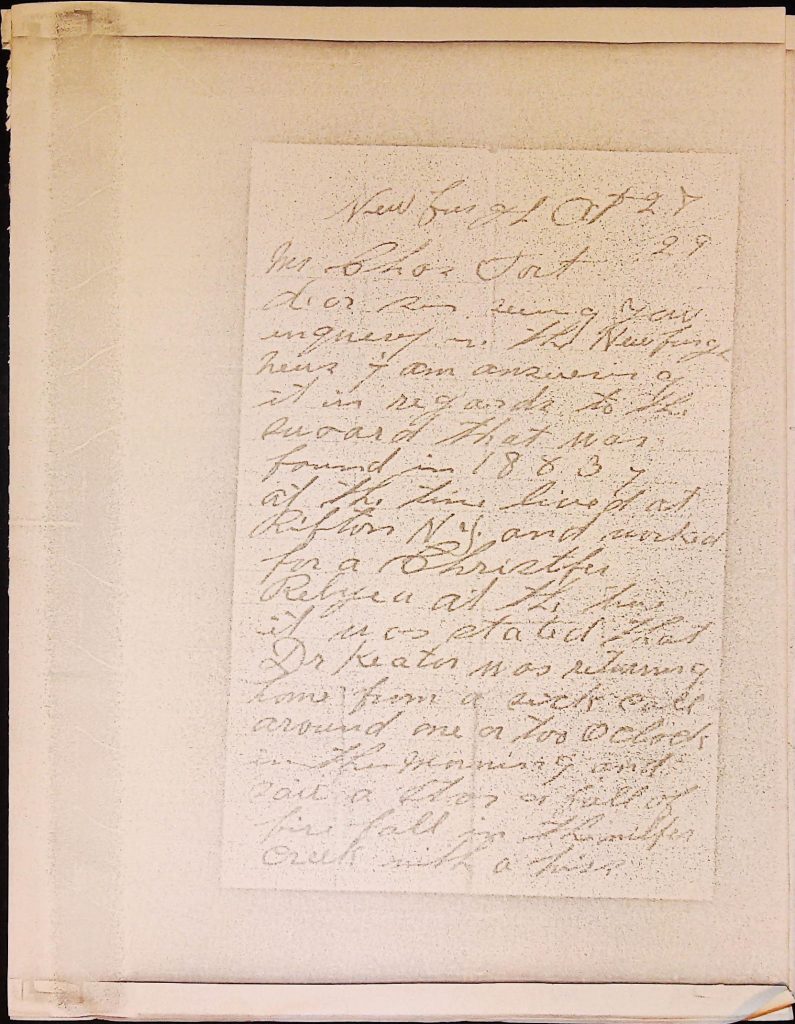 Newburgh Oct 27
29
Mr Chas Fort
dear sir seeing your
enquery in the Newburgh
news i am answering
it in regards to the
sword that was
found in 1883 y
at the time lived at
Rifton N.Y. and worked
for a Christfer
at the time
it was stated that
Dr Keator was returning
home from a sick call
around one or too Oclock
in the morning and
saw a star or ball of
fire fall in the
Creek with a hiss